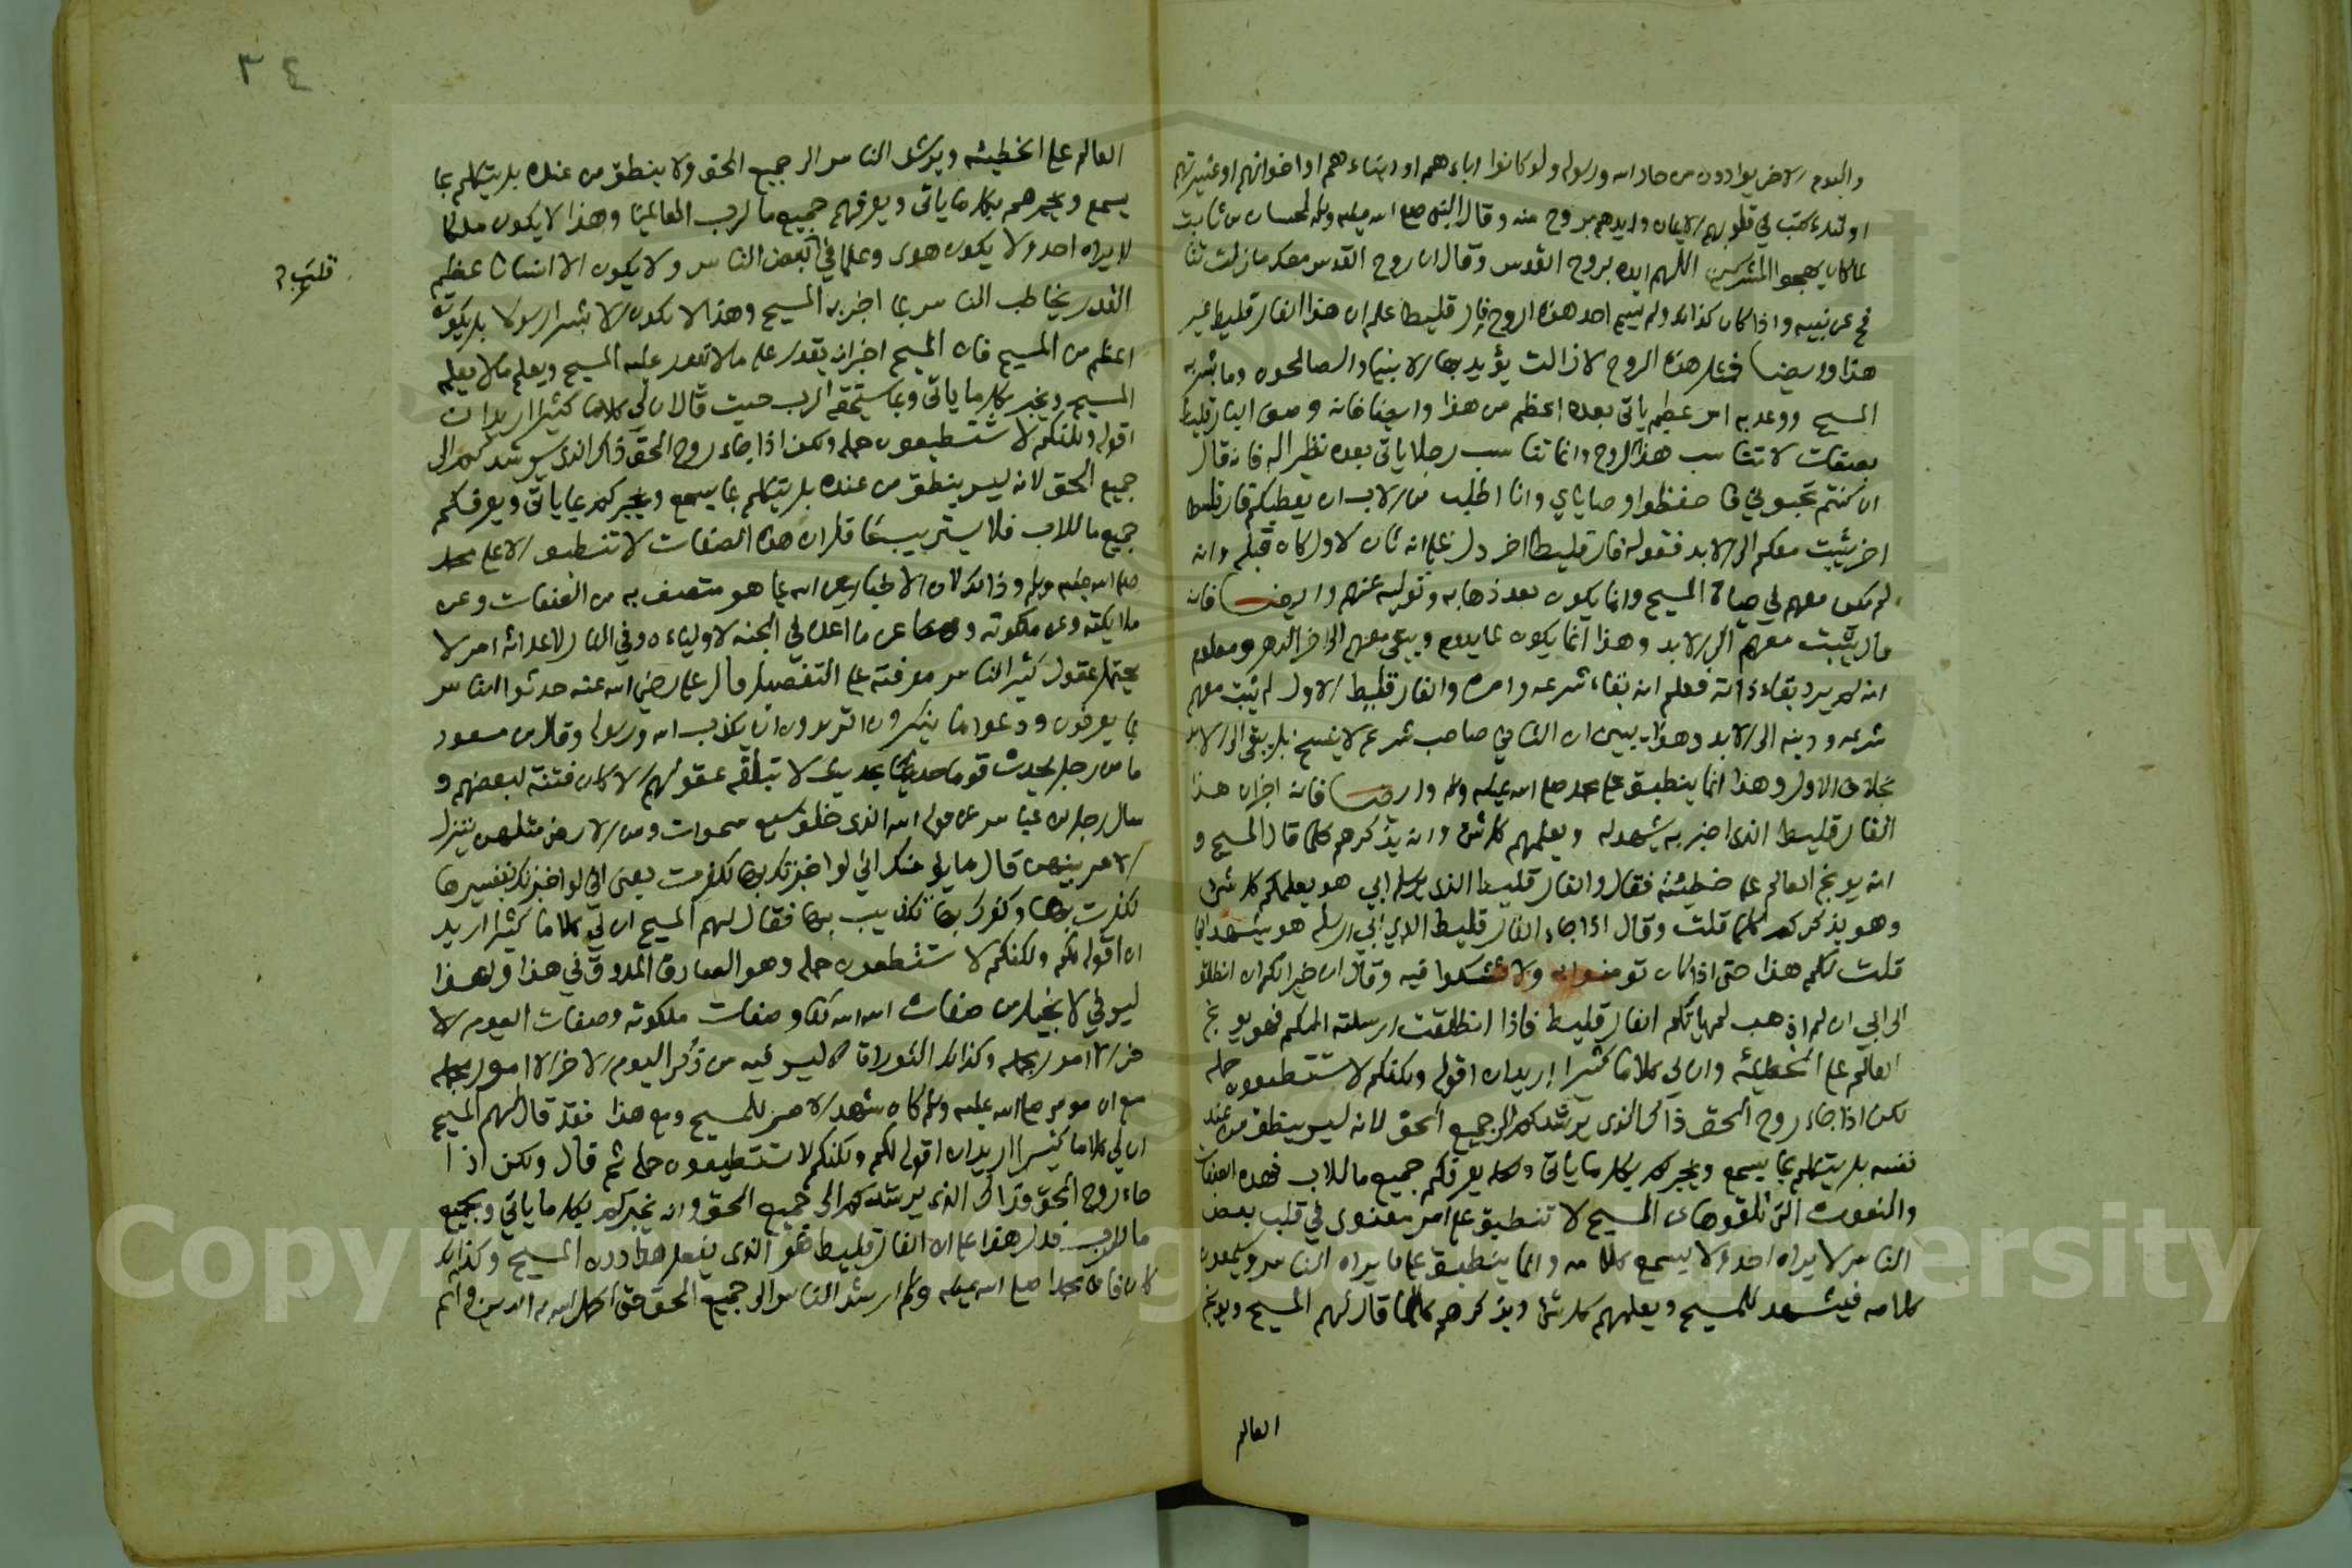 واليوم الاخر يوادون من حاد الله ورسوله ولو كانوا اباءهم او ابناءهم او اخوانهم او عشيرتهم
اولئك كتب في قلوبهم الايمان وايدهم بروح منه وقال النبي صلى الله عليه وسلم لحسان بن ثابت
لما كان يهجوا المشركين اللهم ايده بروح القدس وقال ان روح القدس معك ما زلت تنا
فح عن نبيه واذا كان كذلك ولم يسم احد هذه الروح فارقليطا علم ان هذا الفارقليط غير
هذا وايضا فمثل هذه الروح لا زالت يؤيد بها الانبيا والصالحون وما بشر به
المسيح ووعد به امر عظيم ياتي بعده اعظم من هذا وايضا فانه وصف الفارقليط
بصفات لا تناسب هذا الروح وانما تناسب رجلا ياتي بعده نظيرا له فانه قال
ان كنتم تحبوني فاحفظوا وصاياي وانا اطلب من الاب ان يعطيكم فارقليط
اخر يثبت معكم الى الابد فقوله فارقليطا اخر دل على انه ثان لاول كان قبله وانه
لم يكن معهم في حياة المسيح وانما يكون بعد ذهابه وتوليه عنهم وايضا فانه
قال يثبت معهم الى الابد وهذا انما يكون لما يدوم ويبقى معهم الى اخر الدهر ومعلوم
انه لم يرد بقاء ذاته فعلم انه بقاء شرعه وامره والفارقليط الاول لم يثبت معهم
شرعه ودينه الى الابد وهذا يبين ان الثاني صاحب شرع لا ينسخ بل يبقى الى الابد
بخلاف الاول وهذا انما ينطبق على محمد صلى الله عليه وسلم وايضا فانه اخبر ان هذا
الفارقليط الذي اخبر به يشهد له ويعلمهم كل شئ وانه يذكرهم كلما قال المسيح و
انه يوبخ العالم على خطيئته فقال والفارقليط الذي يرسله ابي هو يعلمكم كل شئ
وهو يذكركم كلما قلت وقال اذا جاء الفارقليط الذي ابي ارسله هو يشهد اني
قلت لكم هذا حتى اذا كان تومنوا به ولا تشكوا فيه وقال ان خيرا لكم ان انطلق
الى ابي ان لم اذهب لم ياتكم الفارقليط فاذا انطلقت ارسلته اليكم فهو يوبخ
العالم على الخطيئه وان لي كلاما كثيرا اريد ان اقوله ولكنكم لا تستطيعون حمله
لكن اذا جاء روح الحق ذاك الذي يرشدكم الى جميع الحق لانه ليس ينطق من عند
نفسه بل يتكلم بما يسمع ويخبركم بكل ما ياتي ويعرفكم جميع ما للاب فهذه الصفات
والنعوت التي تلقوها عن المسيح لا تنطبق على امر معنوي في قلب بعض
الناس لا يراه احد ولا يسمع كلامه وانما ينطبق على ما يراه الناس ويسمعون
كلامه فيشهد للمسيح ويعلمهم كل شئ ويذكرهم كلما قال لهم المسيح ويوبخ
العالم
٣٤
العالم على الخطيئه ويرشد الناس الى جميع الحق ولا ينطق من عنده بل يتكلم بما
يسمع ويخبرهم بكل ما ياتي ويعرفهم جميع ما لرب العالمين وهذا لا يكون ملكا
لا يراه احد ولا يكون هدى وعلما في بعض الناس ولا يكون الا انسانا عظيم
القدر يخاطب الناس بما اخبر به المسيح وهذا لا يكون الا بشرا رسولا بل يكون
اعظم من المسيح فان المسيح اخبر انه يقدر على ما لا يقدر عليه المسيح ويعلم ما لا يعلمه
المسيح ويخبر بكل ما ياتي وبما يستحقه الرب حيث قال ان لي كلاما كثيرا اريد ان
اقوله ولكنكم لا تستطيعون حمله ولكن اذا جاء روح الحق ذاك الذي يرشدكم الى
جميع الحق لانه ليس ينطق من عنده بل يتكلم بما يسمع ويخبركم بما ياتي ويعرفكم
جميع ما للاب فلا يستريب عاقل ان هذه الصفات لا تنطبق الا على محمد
صلى الله عليه وسلم وذلك لان الاخبار عن الله بما هو متصف به من الصفات وعن
ملايكته وعن ملكوته وعن ما اعده في الجنه لاوليائه وفي النار لاعدائه امر لا
يحتمل عقول كثير الناس معرفته على التفصيل قال علي رضي الله عنه حدثوا الناس
بما يعرفون ودعوا ما ينكرون اتريدون ان يكذب الله ورسوله وقال بن مسعود
ما من رجل يحدث قوما حديثا لا تبلغه عقولهم الا كان فتنة لبعضهم و
سال رجل بن عباس عن قوله الله الذي خلق سبع سموات ومن الارض مثلهن يتنزل
الامر بينهن قال ما يؤمنك اني لو اخبرتك بها لكفرت يعني اني لو اخبرتك بتفسيرها
لكفرت بها وكفرك بها تكذيبك بها فقال لهم المسيح ان لي كلاما كثيرا اريد
ان اقوله لكم ولكنكم لا تستطيعون حمله وهو الصادق المصدوق في هذا ولهذا
ليس في الانجيل من صفات الله تعالى وصفات ملكوته وصفات اليوم الا
خر الا امور مجمله وكذلك التوراة ليس فيه من ذكر اليوم الاخر الا امور مجمله
مع ان موسى صلى الله عليه وسلم كان يمهد الامر للمسيح ومع هذا فقد قال لهم المسيح
ان لي كلاما كثيرا اريد ان اقوله لكم ولكنكم لا تستطيعون حمله ثم قال ولكن اذا
جاء روح الحق فذاك الذي يرشدكم الى جميع الحق وانه يخبركم بكل ما ياتي وبجميع
ما للرب فدل هذا على ان الفارقليط هو الذي يفعل هذا دون المسيح وكذلك
كان فان محمدا صلى الله عليه وسلم ارشد الناس الى جميع الحق حتى اكمل الله به الدين واتم